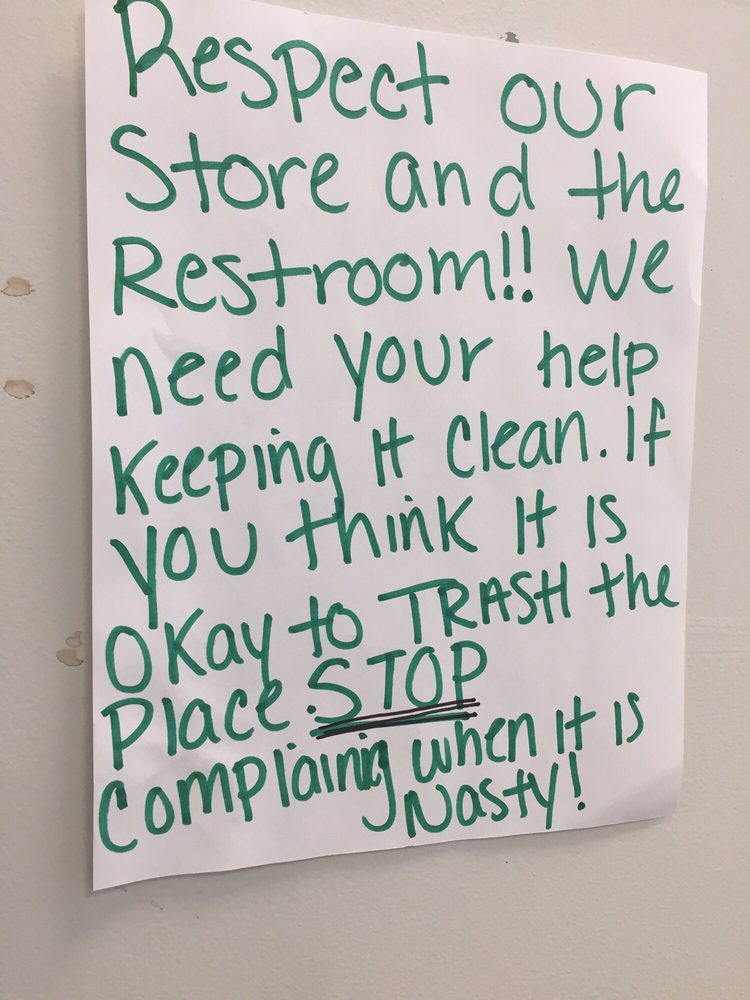 Respect our
Store and the
Restroom!! We
need your help
Keeping it clean. If
you think it is
Okay to TRASH the
Place. STOP
Complaining when it is
Nasty!